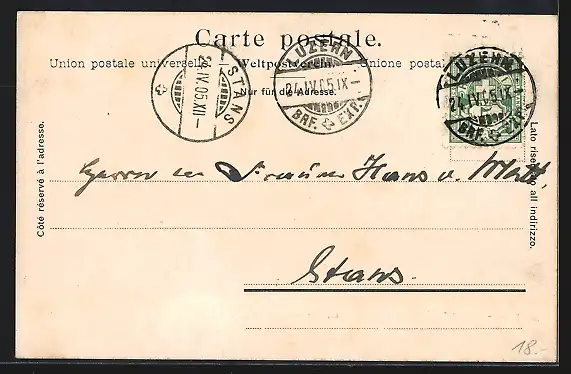 Carte postale.
Union postale universelle. Weltpostverein. Unione postale
Nur für die Adresse.
Côté réservé à l'adresse.
Lato riservato all indirizzo.
STANS
24.IV.05.XII
LUZERN
24.IV.05.IX
BRF. EXP.
LUZERN
24.IV.05.IX
BRF. EXP.
Herrn Hans v. Matt,
Stans.
18.-